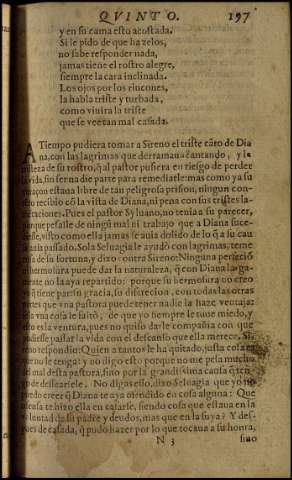 QVINTO. 197
y en su cama esto acostada,
Si le pido de que ha zelos,
no sabe responder nada,
jamas tiene el rostro alegre,
siempre la cara inclinada.
Los ojos por los rincones,
la habla triste y turbada,
como viuira la triste
que se vee tan mal casada.
A Tiempo pudiera tomar a Sireno el triste cãto de Dia
na, con las lagrimas que derramaua cantando, y la
tristeza de su rostro, q̃ al pastor pusiera en riesgo de perder
la vida, sin ser nadie parte para remediarle: mas como ya su
coraçon estaua libre de tan peligrosa prision, ningun con-
recibio cõ la vista de Diana, ni pena con sus tristes la-
Pues el pastor Syluano, no tenia a su parecer,
porque pesalle de ningũ mal ni trabajo que a Diana suce-
visto como ella jamas se auia dolido de lo q̃ a su cau
passado. Sola Seluagia le ayudò con lagrimas, teme
rosa de su fortuna, y dixo contra Sireno: Ninguna perfeciõ
ni hermosura puede dar la naturaleza, q̃ con Diana larga-
mente no la aya repartido: porque su hermosura no creo
q̃ tiene par: su gracia, su discrecion, con todas las otras
partes que vna pastora puede tener nadie la haze ventaja:
vna cosa le faltó, de que yo siempre le tuue miedo, y
esto es la ventura, pues no quiso darle compañia con que
pudiesse passar la vida con el descanso que ella merece. Si-
reno respondio: Quien a tantos le ha quitado, justa cosa es
que no le tenga: y no digo esto porque no me pesa mucho
del mal desta pastora, sino por la grandissima causa q̃ ten-
go de dessearsele. No digas esso, dixo Seluagia que yo no
puedo creer q̃ Diana te aya ofendido en cosa alguna: Que
ofensa te hizo ella en casarse, siendo cosa que estaua en la
voluntad de su padre y deudos, mas que en la suya? Y des-
pues de casada, q̃ pudo hazer por lo que tocaua a su honra,
N 3 sino